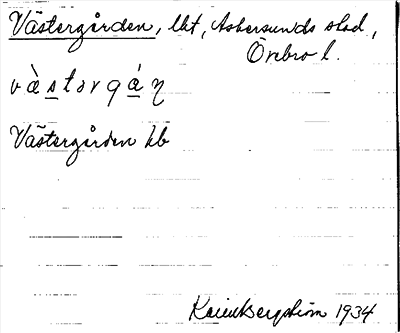 Västergården, lht, Askersunds stad,
Örebro l.
västərgán
Västergården hb
Karin Bergström 1934